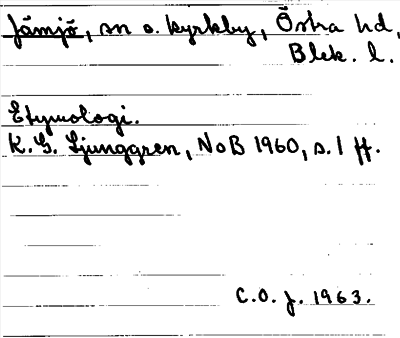 Jämjö, sn o. kyrkby, Östra hd,
Blek. l.
Etymologi.
K. G. Ljunggren, NoB 1960, s. 1 ff.
C. O. J. 1963.